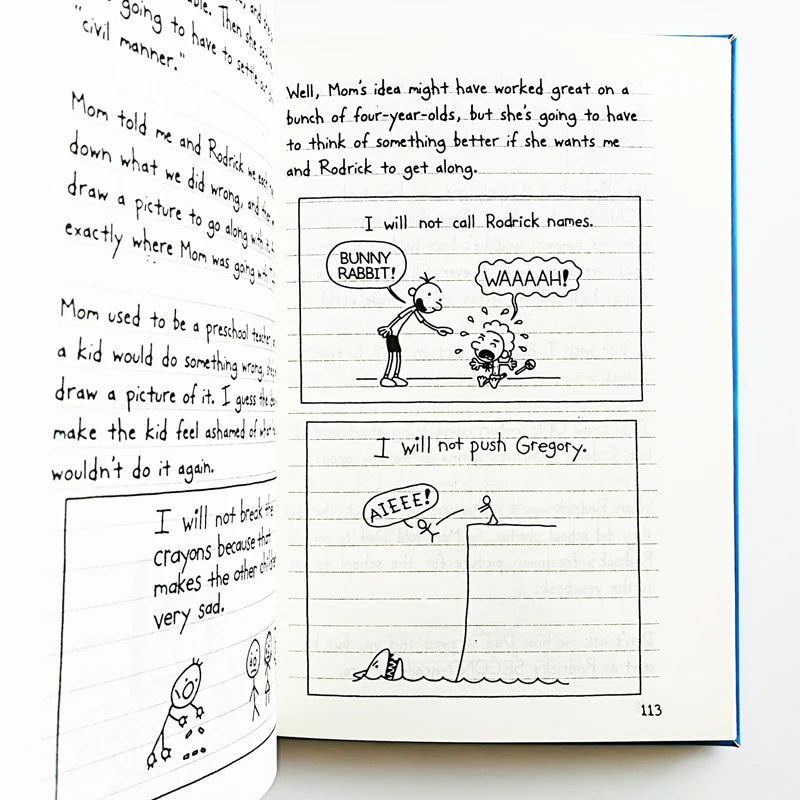 able. Then she said
going to have to settle our
"civil manner."
Mom told me and Rodrick we each
down what we did wrong, and then
draw a picture to go along with it.
exactly where Mom was going with
Mom used to be a preschool teacher,
a kid would do something wrong,
draw a picture of it. I guess the
make the kid feel ashamed of what
wouldn't do it again.
I will not break the
crayons because that
makes the other children
very sad.
Well, Mom's idea might have worked great on a
bunch of four-year-olds, but she's going to have
to think of something better if she wants me
and Rodrick to get along.
I will not call Rodrick names.
BUNNY
RABBIT!
WAAAAH!
I will not push Gregory.
AIEEE!
113